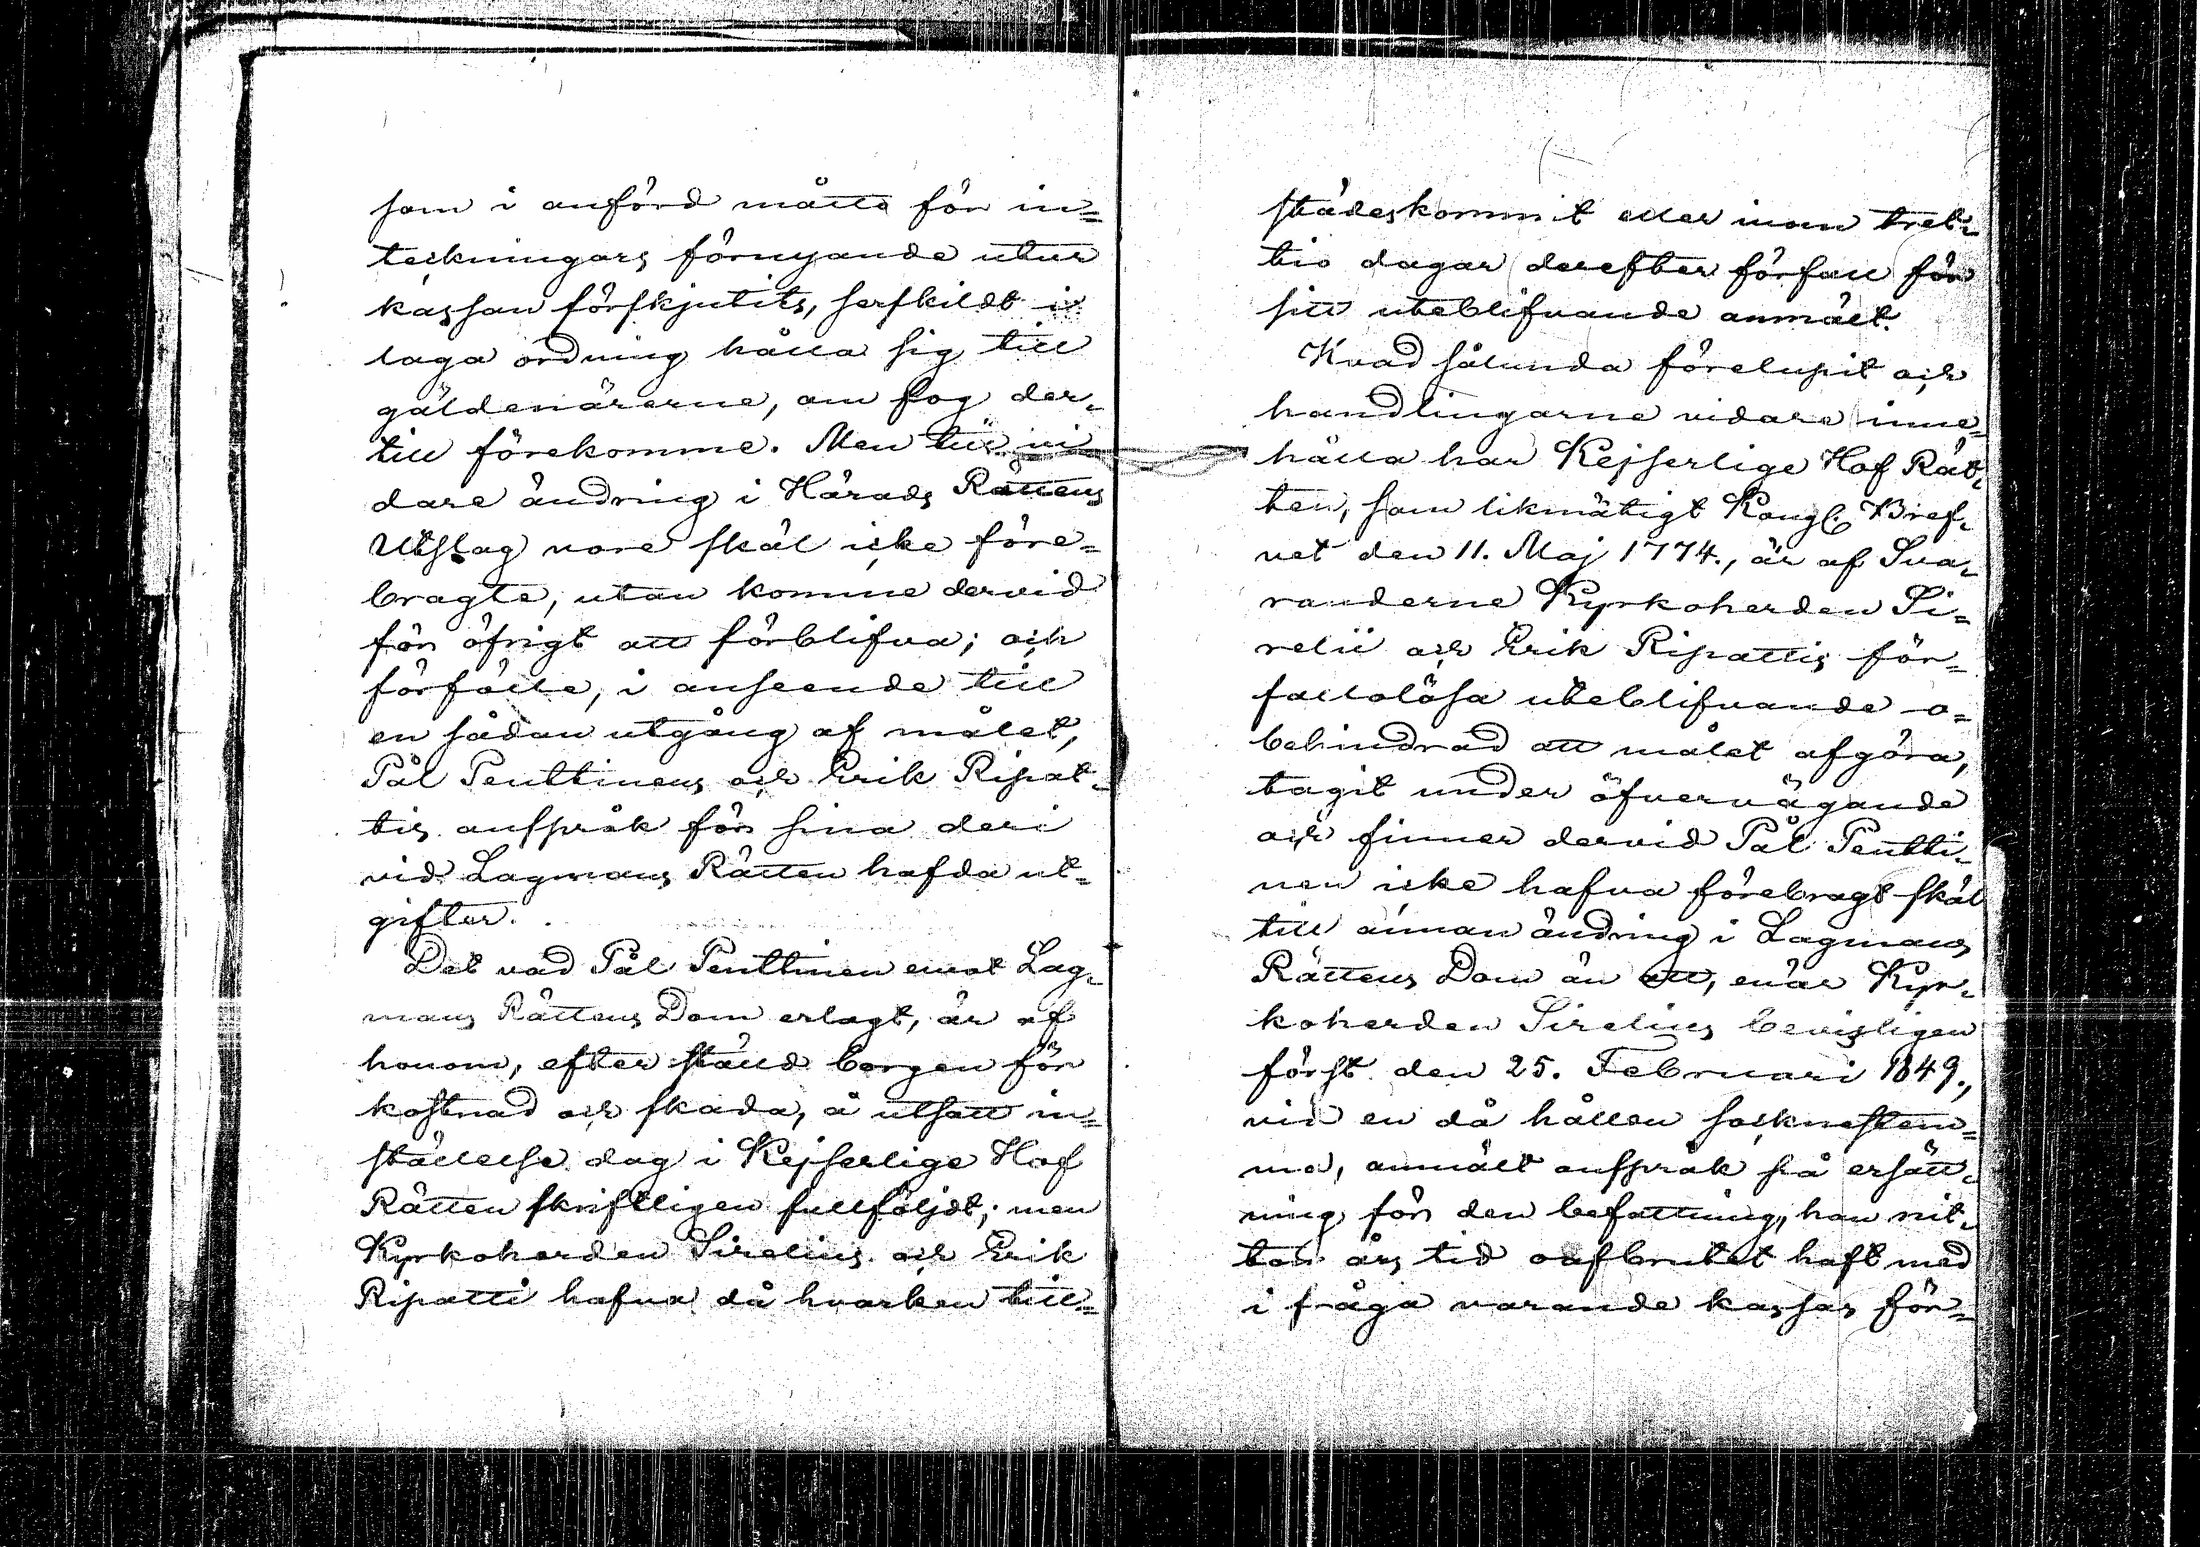 som i anförd måtto för in=
teckningars förnyande utur
kassan förskjutits, serskildt i
laga ordning hålla sig till
gäldenärerne, om fog der-
till förekomme. Men till vi
dare ändring i Härads Rättens
Utslag vore skäl icke före=
bragte, utan komme dervid
för öfrigt att förblifva; och
förfölle, i anseende till
en sådan utgång af målet,
Pål Penttinens och Erik Ripat-
tis anspråk för sina deri
vid Lagmans Rätten hafda ut-
gifter.
Det vad Pål Penttinen emot Lag-
mans Rättens Dom erlagt, är af
honom, efter ställd borgen för
kostnad och skada, å utsatt in=
ställelse dag i Kejserlige Hof
Rätten skriftligen fullföljdt; men
Kyrkoherden Sirelius och Erik
Ripatti hafva då hvarken till=
städeskommit eller inom tret-
tio dagar derefter förfall för
sitt uteblifvande anmält.
Hvad sålunda förelupit och
handlingarne vidare inne=
hålla har Kejserlige Hof Rät-
ten, som likmätigt Kongl. Bref-
vet den 11. Maj 1774., är af Sva-
randerne Kyrkoherden Si=
relii och Erik Ripattis för=
fallolösa uteblifvande o=
behindrad att målet afgöra,
tagit under öfvervägande
och finner dervid Pål Pentti-
nen icke hafva förebragt skäl
till annan ändring i Lagmans
Rättens Dom än att, enär Kyr-
koherden Sirelius bevisligen
först den 25. Februari 1849.,
vid en då hållen sockenstäm=
ma, anmält anspråk på ersätt-
ning för den befattning, han nit-
ton års tid oafbrutet haft med
i fråga varande kassas för=